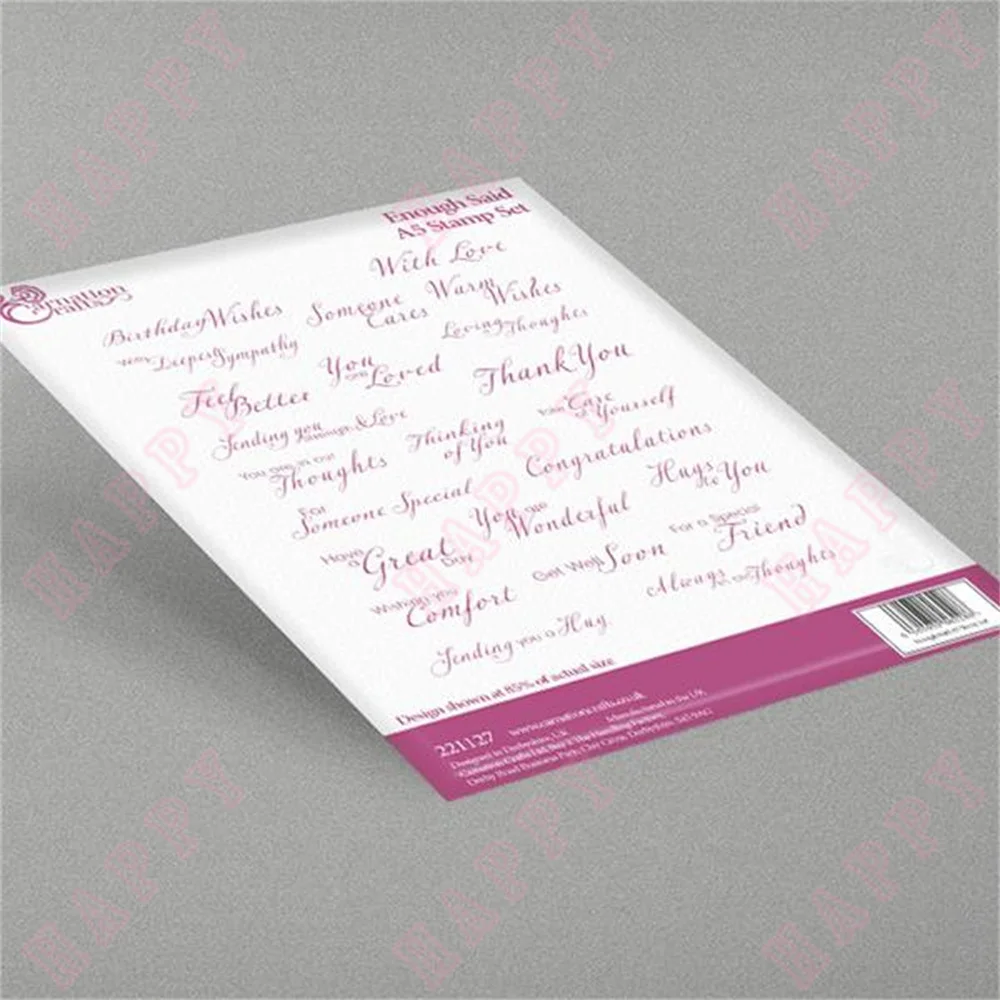 Enough Said
A5 Stamp Set
Carnation
Crafts
With Love
Birthday Wishes
Someone
Cares
Warm
Wishes
With Deepest Sympathy
Loving Thoughts
Feel
Better
You
are Loved
Thank You
Sending you Love
Thinking
of You
Take Care
of Yourself
You are in our
Thoughts
Congratulations
Hugs
to You
For
Someone Special
You are
Wonderful
For a Special
Friend
Have
a Great
Day
Get Well Soon
Always in our Thoughts
Wishing you
Comfort
Sending you a Hug
Design shown at 85% of actual size
221127
www.carnationcrafts.co.uk
Designed in Derbyshire, UK
Manufactured in the UK
HAPPY
HAPPY
HAPPY
HAPPY
HAPPY
HAPPY
HAPPY
HAPPY
HAPPY